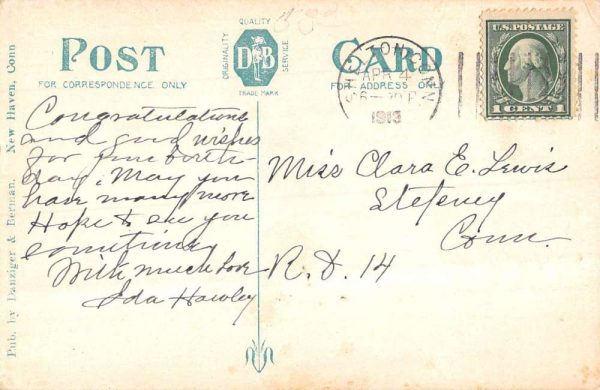 POST CARD
QUALITY
ORIGINALITY
SERVICE
D B
TRADE MARK
FOR CORRESPONDENCE ONLY
FOR ADDRESS ONLY
SHELTON, CONN
APR 4
6-30 P
1913
U.S. POSTAGE
1 CENT 1
Pub. by Danziger & Berman. New Haven, Conn
Congratulations
and good wishes
for your birth-
day. May you
have many more
Hope to see you
sometime
With much love
Ida Hawley
Miss Clara E. Lewis
Stepney
Conn.
R.D. 14